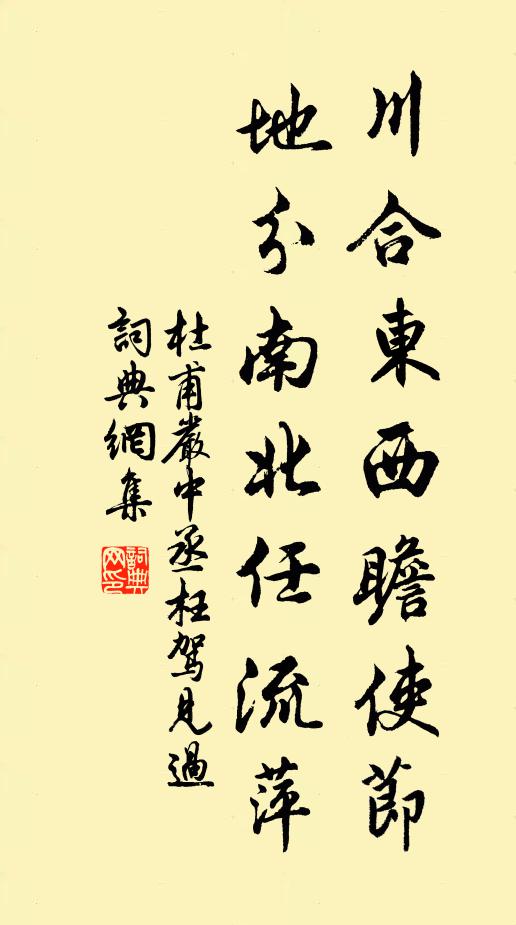 川合東西瞻使節
地分南北任流萍
杜甫嚴中丞枉駕見過
詞典網集
詞典網印